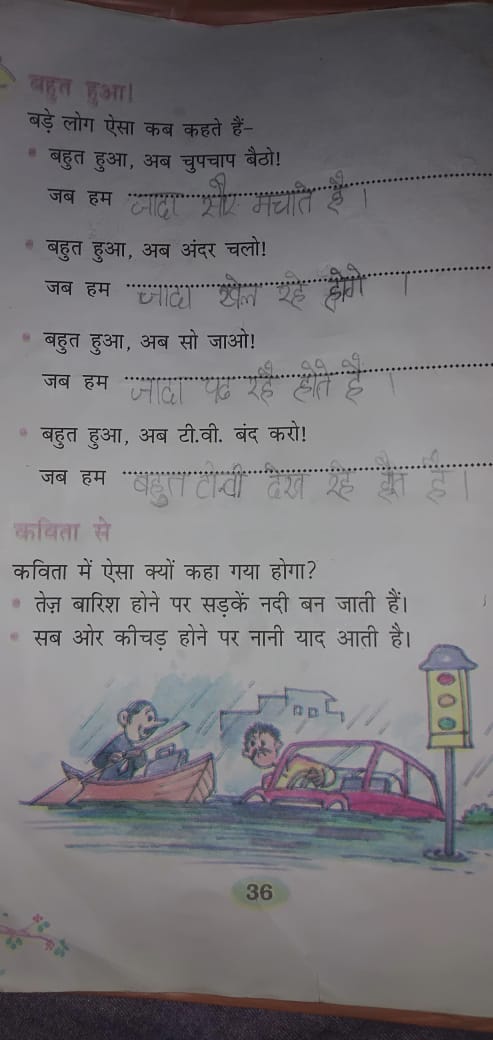 बहुत हुआ!
बड़े लोग ऐसा कब कहते हैं–
• बहुत हुआ, अब चुपचाप बैठो!
जब हम जादा सौर मचाते है।
• बहुत हुआ, अब अंदर चलो!
जब हम जादा खेल रहे होगे ।
• बहुत हुआ, अब सो जाओ!
जब हम जादा पद रहै होते है ।
• बहुत हुआ, अब टी.वी. बंद करो!
जब हम बहुत टी.वी देख रहे है।
कविता से
कविता में ऐसा क्यों कहा गया होगा?
• तेज़ बारिश होने पर सड़कें नदी बन जाती हैं।
• सब ओर कीचड़ होने पर नानी याद आती है।
36